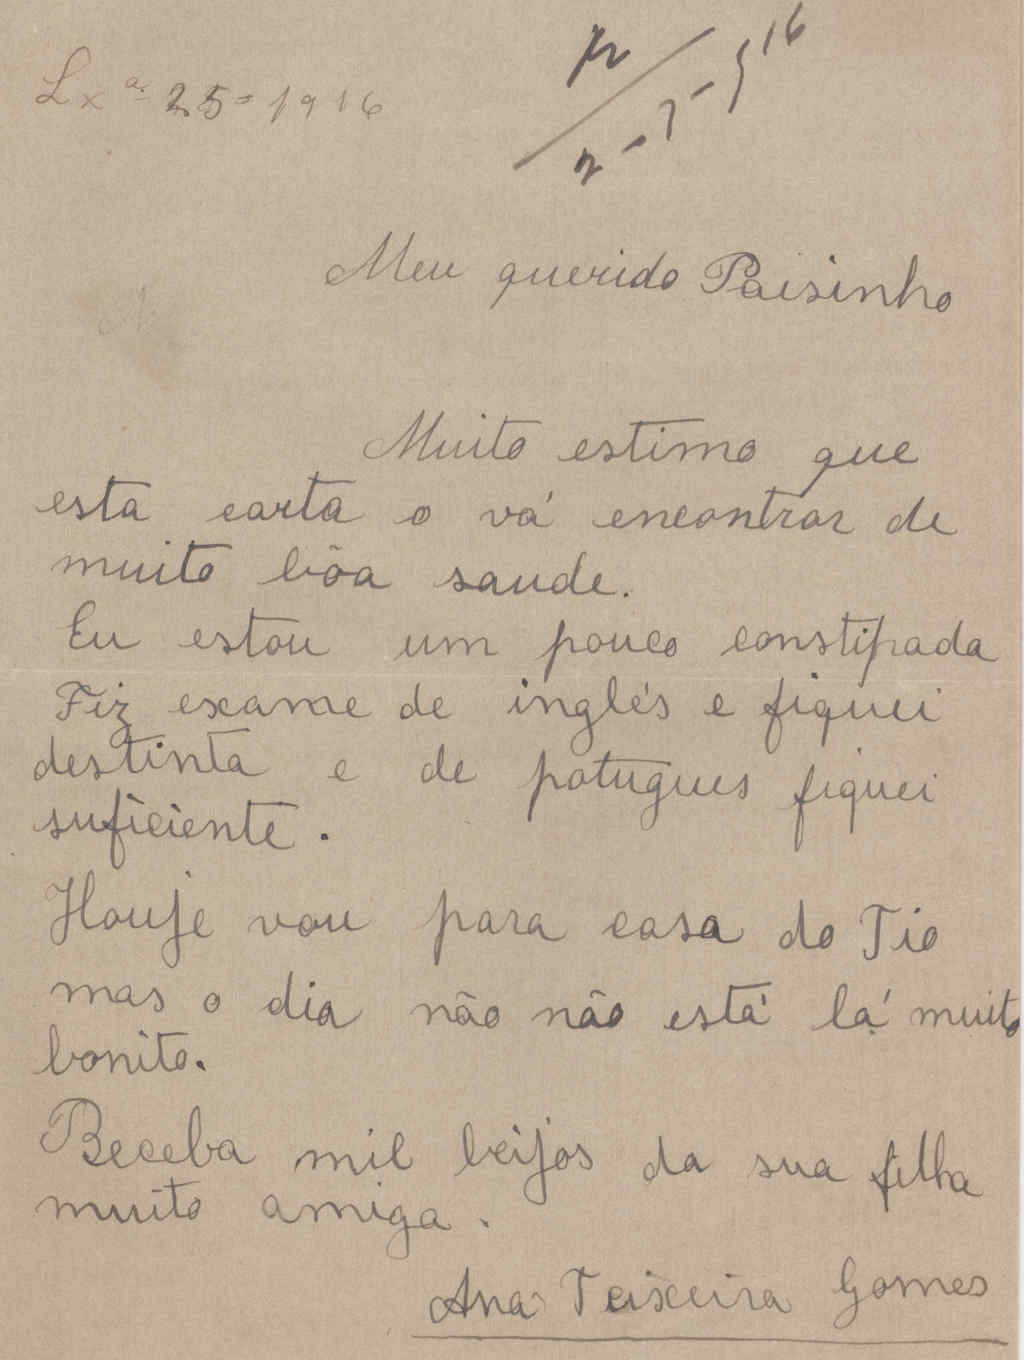 Lx.ª 25=1916
Meu querido Paisinho
Muito estimo que
esta carta o vá encontrar de
muito bõa saude.
Eu estou um pouco constipada
Fiz exame de inglés e fiquei
destinta e de potugues fiquei
suficiente.
Houje vou para casa do Tio
mas o dia não não está lá muito
bonito.
Beceba mil beijos da sua filha
muito amiga.
Ana Teixeira Gomes